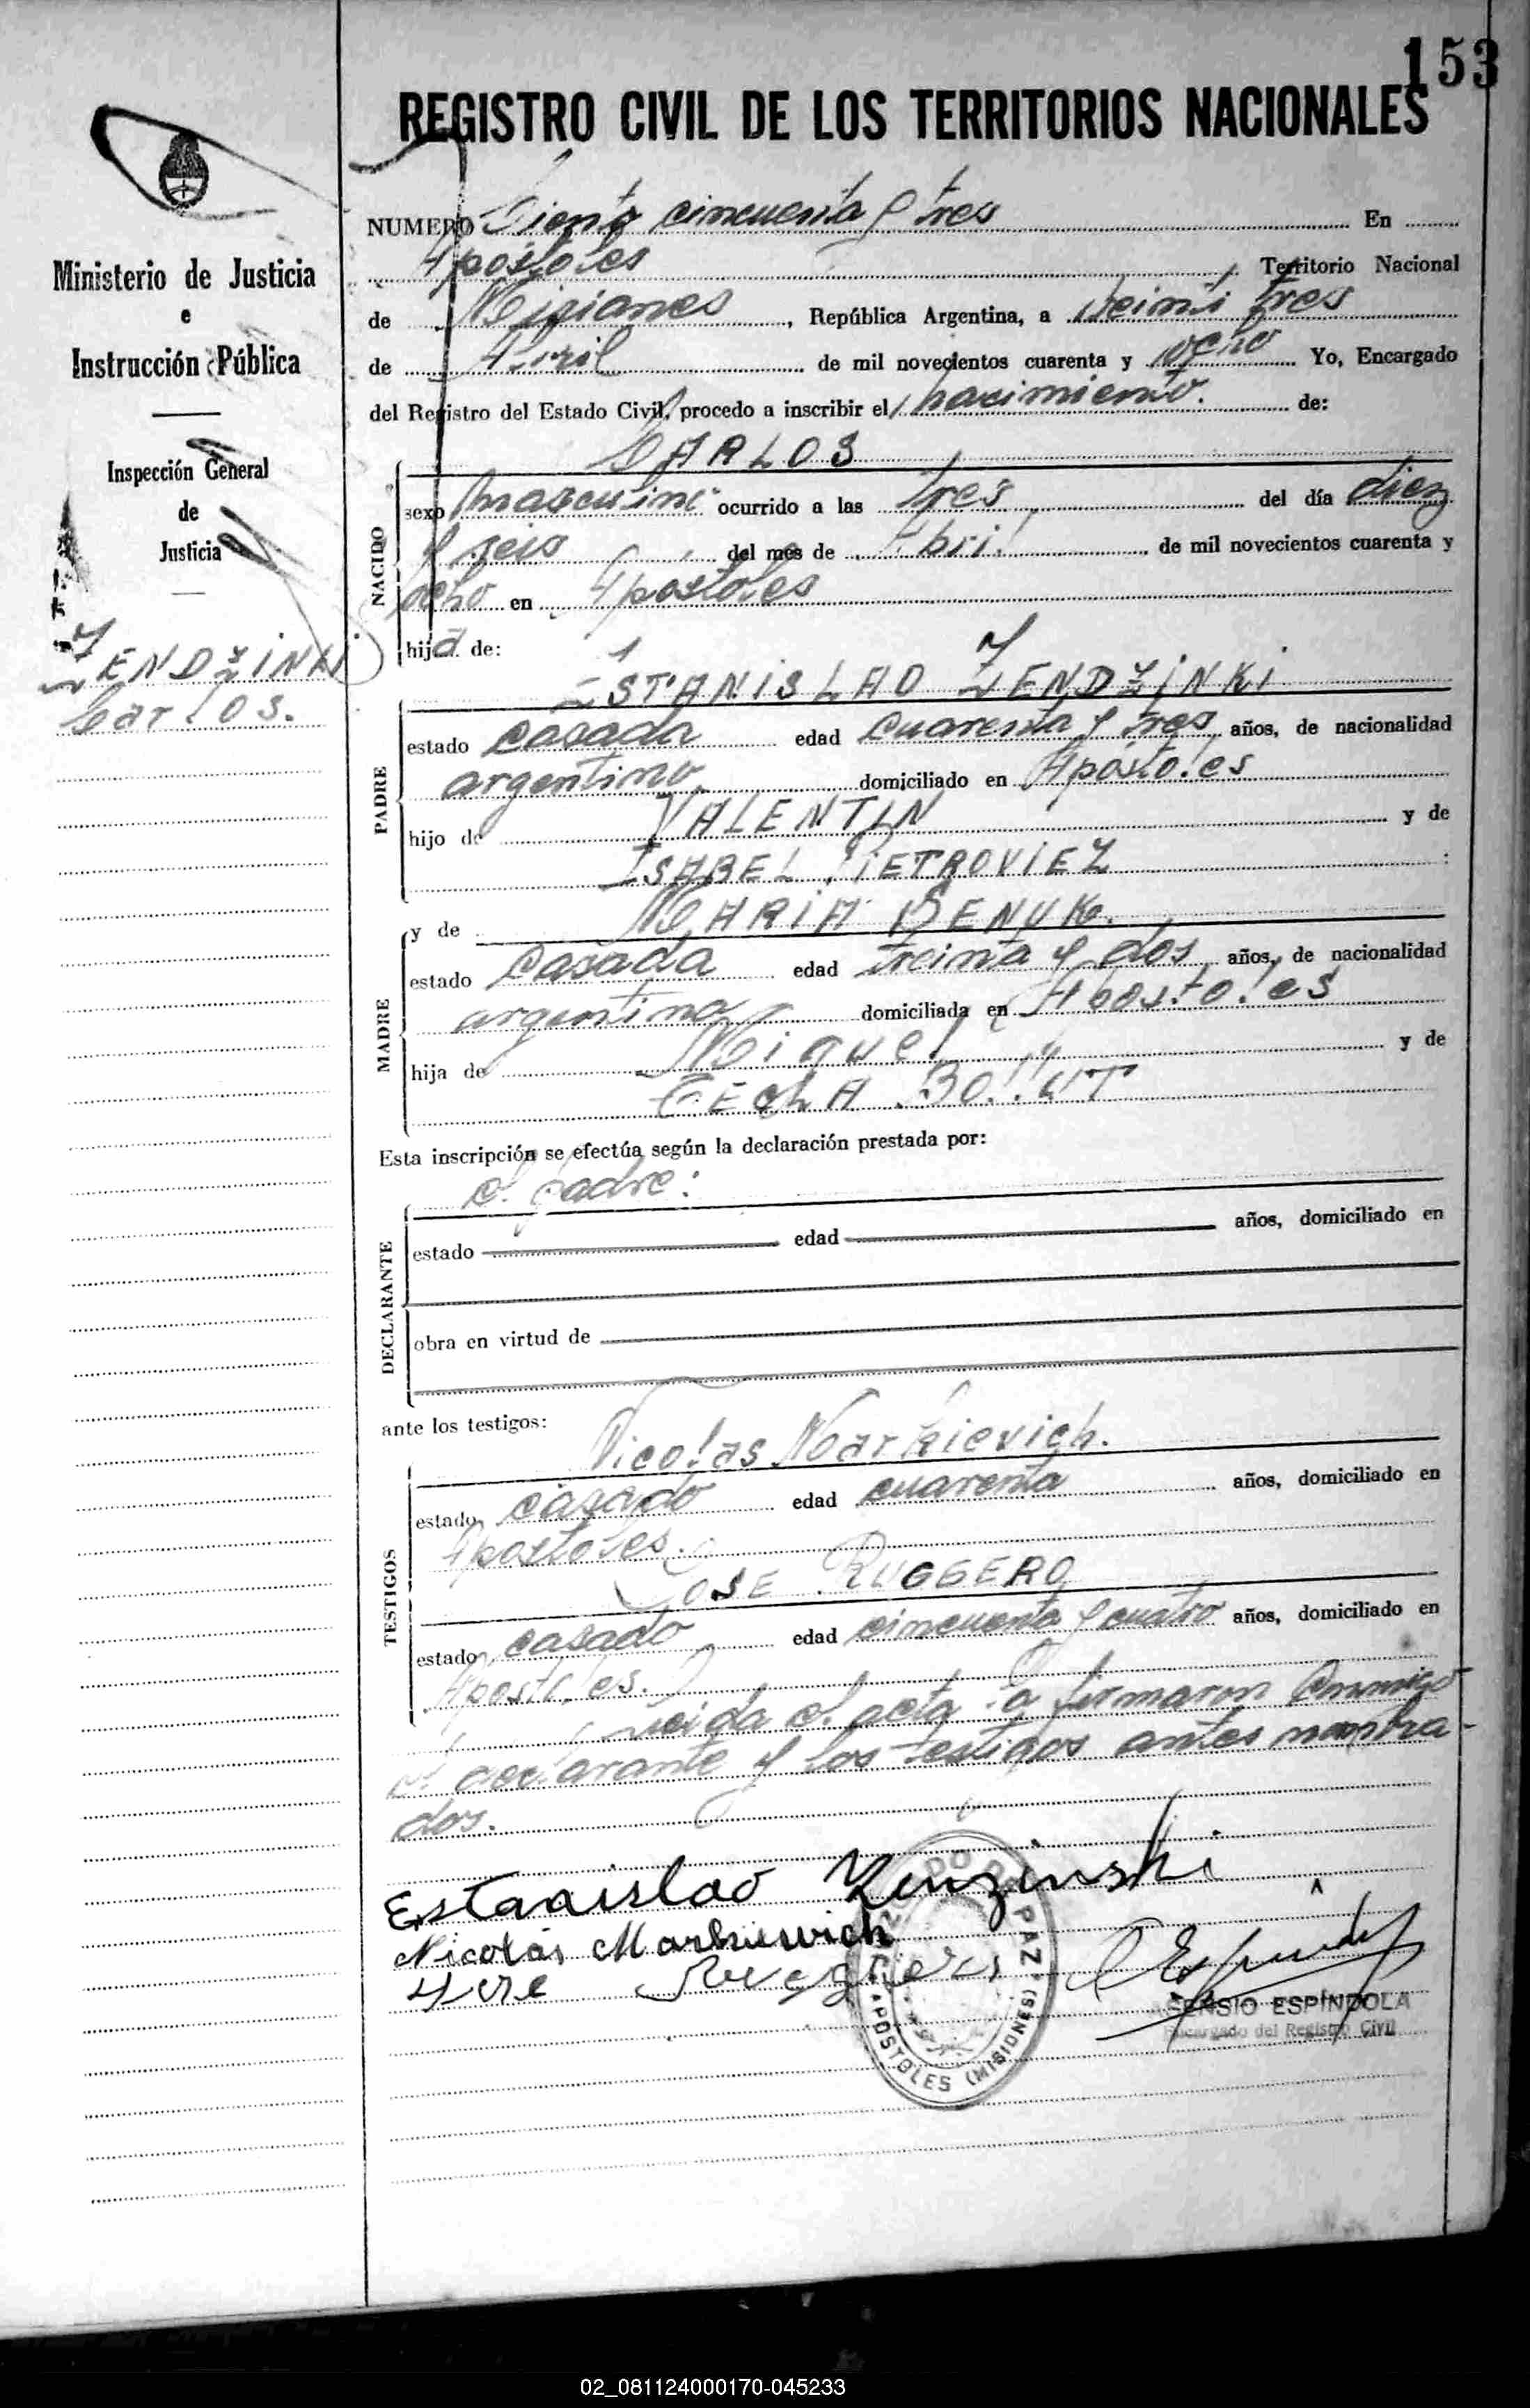 153
REGISTRO CIVIL DE LOS TERRITORIOS NACIONALES
NUMERO Ciento cincuenta y tres En
Apóstoles Territorio Nacional
de Misiones, República Argentina, a veinti tres
de Abril de mil novecientos cuarenta y ocho Yo, Encargado
del Registro del Estado Civil, procedo a inscribir el nacimiento. de:
CARLOS
NACIDO
sexo masculino ocurrido a las tres del día diez
y seis del mes de Abril de mil novecientos cuarenta y
ocho en Apóstoles
hijo de:
ESTANISLAO ZENDZINKI
PADRE
estado casado edad cuarenta y tres años, de nacionalidad
argentino, domiciliado en Apóstoles
hijo de VALENTIN y de
ISABEL PIETROVIEZ
MADRE
y de MARIA BENYK.
estado casada edad treinta y dos años, de nacionalidad
argentina domiciliada en Apostoles
hija de Miguel y de
TECLA
Esta inscripción se efectúa según la declaración prestada por:
el padre:
DECLARANTE
estado edad años, domiciliado en
obra en virtud de
ante los testigos:
Nicolas Markievich.
TESTIGOS
estado casado edad cuarenta años, domiciliado en
Apostoles.
JOSE RUGGERO
estado casado edad cincuenta y cuatro años, domiciliado en
Apostoles.
Leida el acta la firmaron conmigo
el declarante y los testigos antes nombra-
dos.
Estanislao Zenzinski
Nicolás Markiewich
José Ruggero
JUZGADO DE PAZ
APOSTOLES (MISIONES)
ASENSIO ESPINDOLA
Encargado del Registro Civil
Ministerio de Justicia
e
Instrucción Pública
Inspección General
de
Justicia
ZENDZINKI
Carlos.
02_081124000170-045233